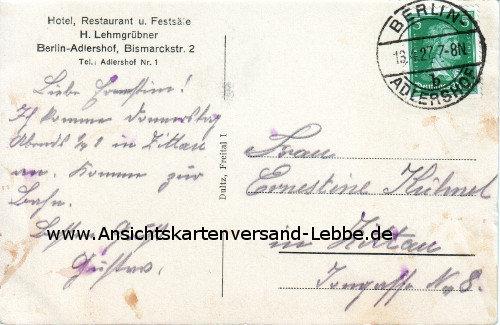 Hotel, Restaurant u. Festsäle
H. Lehmgrübner
Berlin-Adlershof, Bismarckstr. 2
Tel.: Adlershof Nr. 1
Liebe Ernestine!
Ich komme Donnerstag
Abends in Zittau
an. Komme zur
Bahn.
Gustav.
Dultz, Freital I
BERLIN
7-8N
ADLERSHOF
Frau
Ernestine Kühnel
in Zittau
No 8.
www.Ansichtskartenversand-Lebbe.de